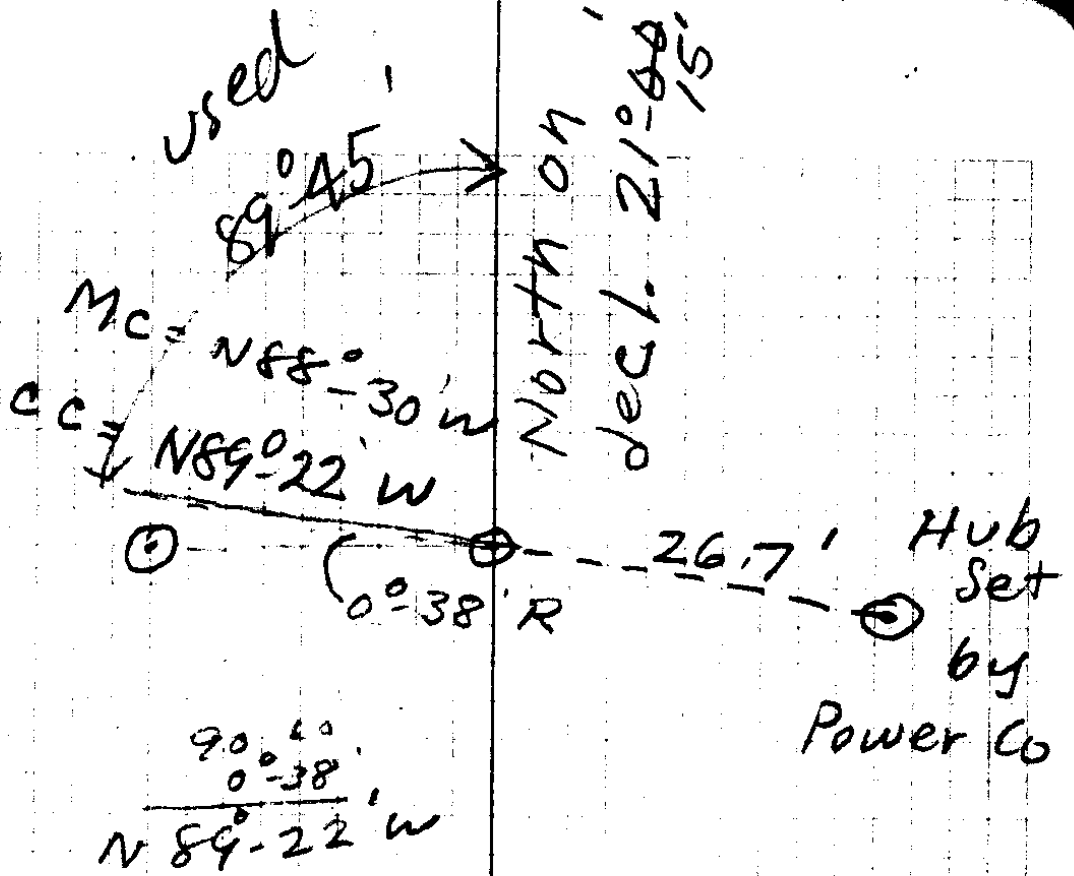 used
89°-45'
North on
decl. 21°-
15'
Mc = N88°-30'W
CC = N89°-22'W
0°-38'R
26.7'
Hub
Set
by
Power Co
90
0°-38'
N 89°-22'W